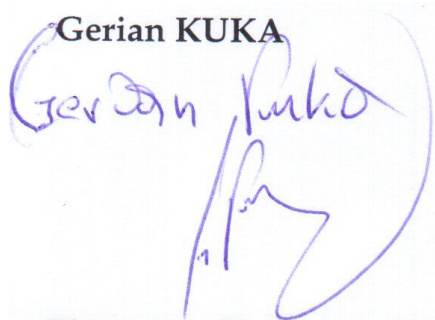 Gerian KUKA
Gerian Kuka